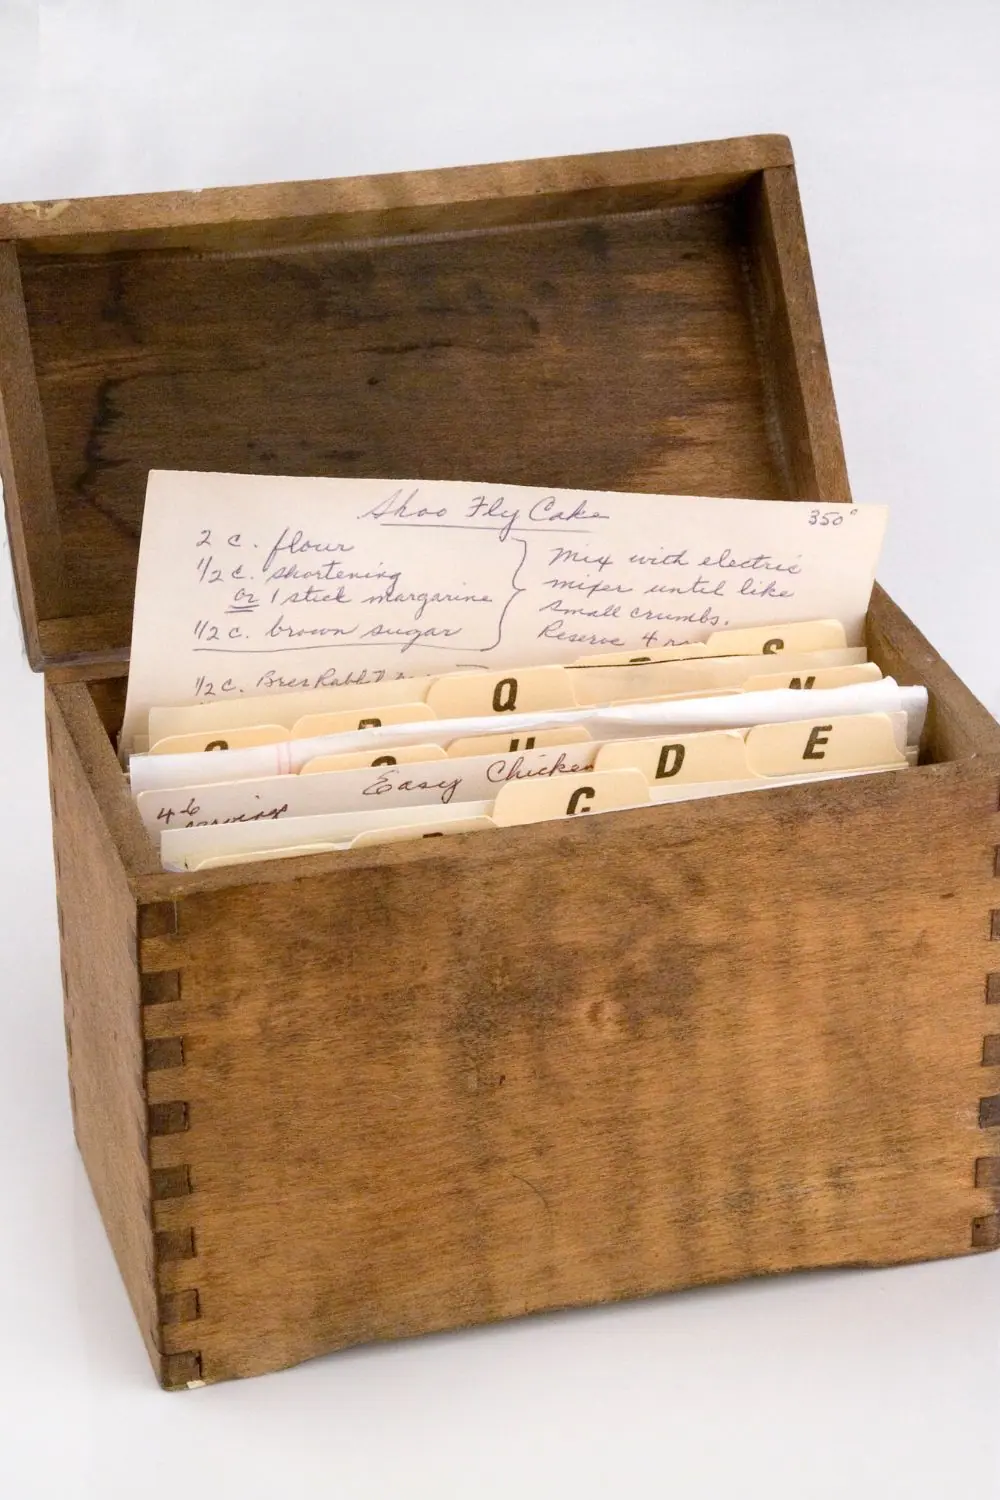 Shoo Fly Cake
350°
2 c. flour
1/2 c. shortening
or 1 stick margarine
1/2 c. brown sugar
Mix with electric
mixer until like
small crumbs.
Reserve 4
1/2 c. Brer Rabbit
S
Q
N
H
D
E
Easy Chicken
4-6
servings
C